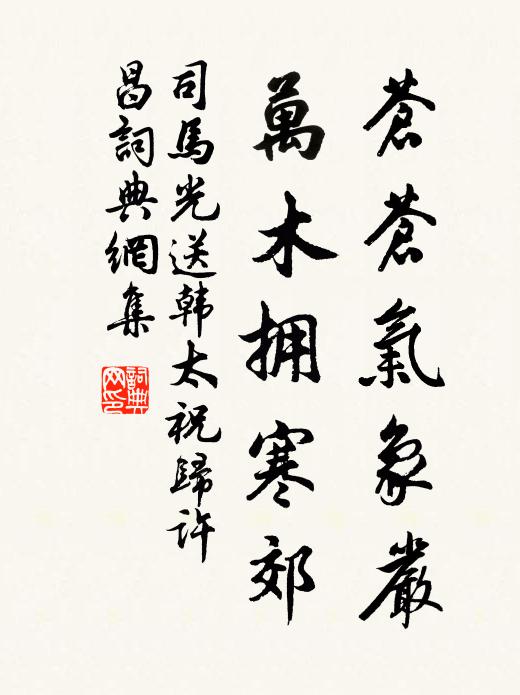 蒼蒼氣象嚴
萬木拥寒郊
司馬光送韩太祝歸许
昌詞典網集
詞典网印